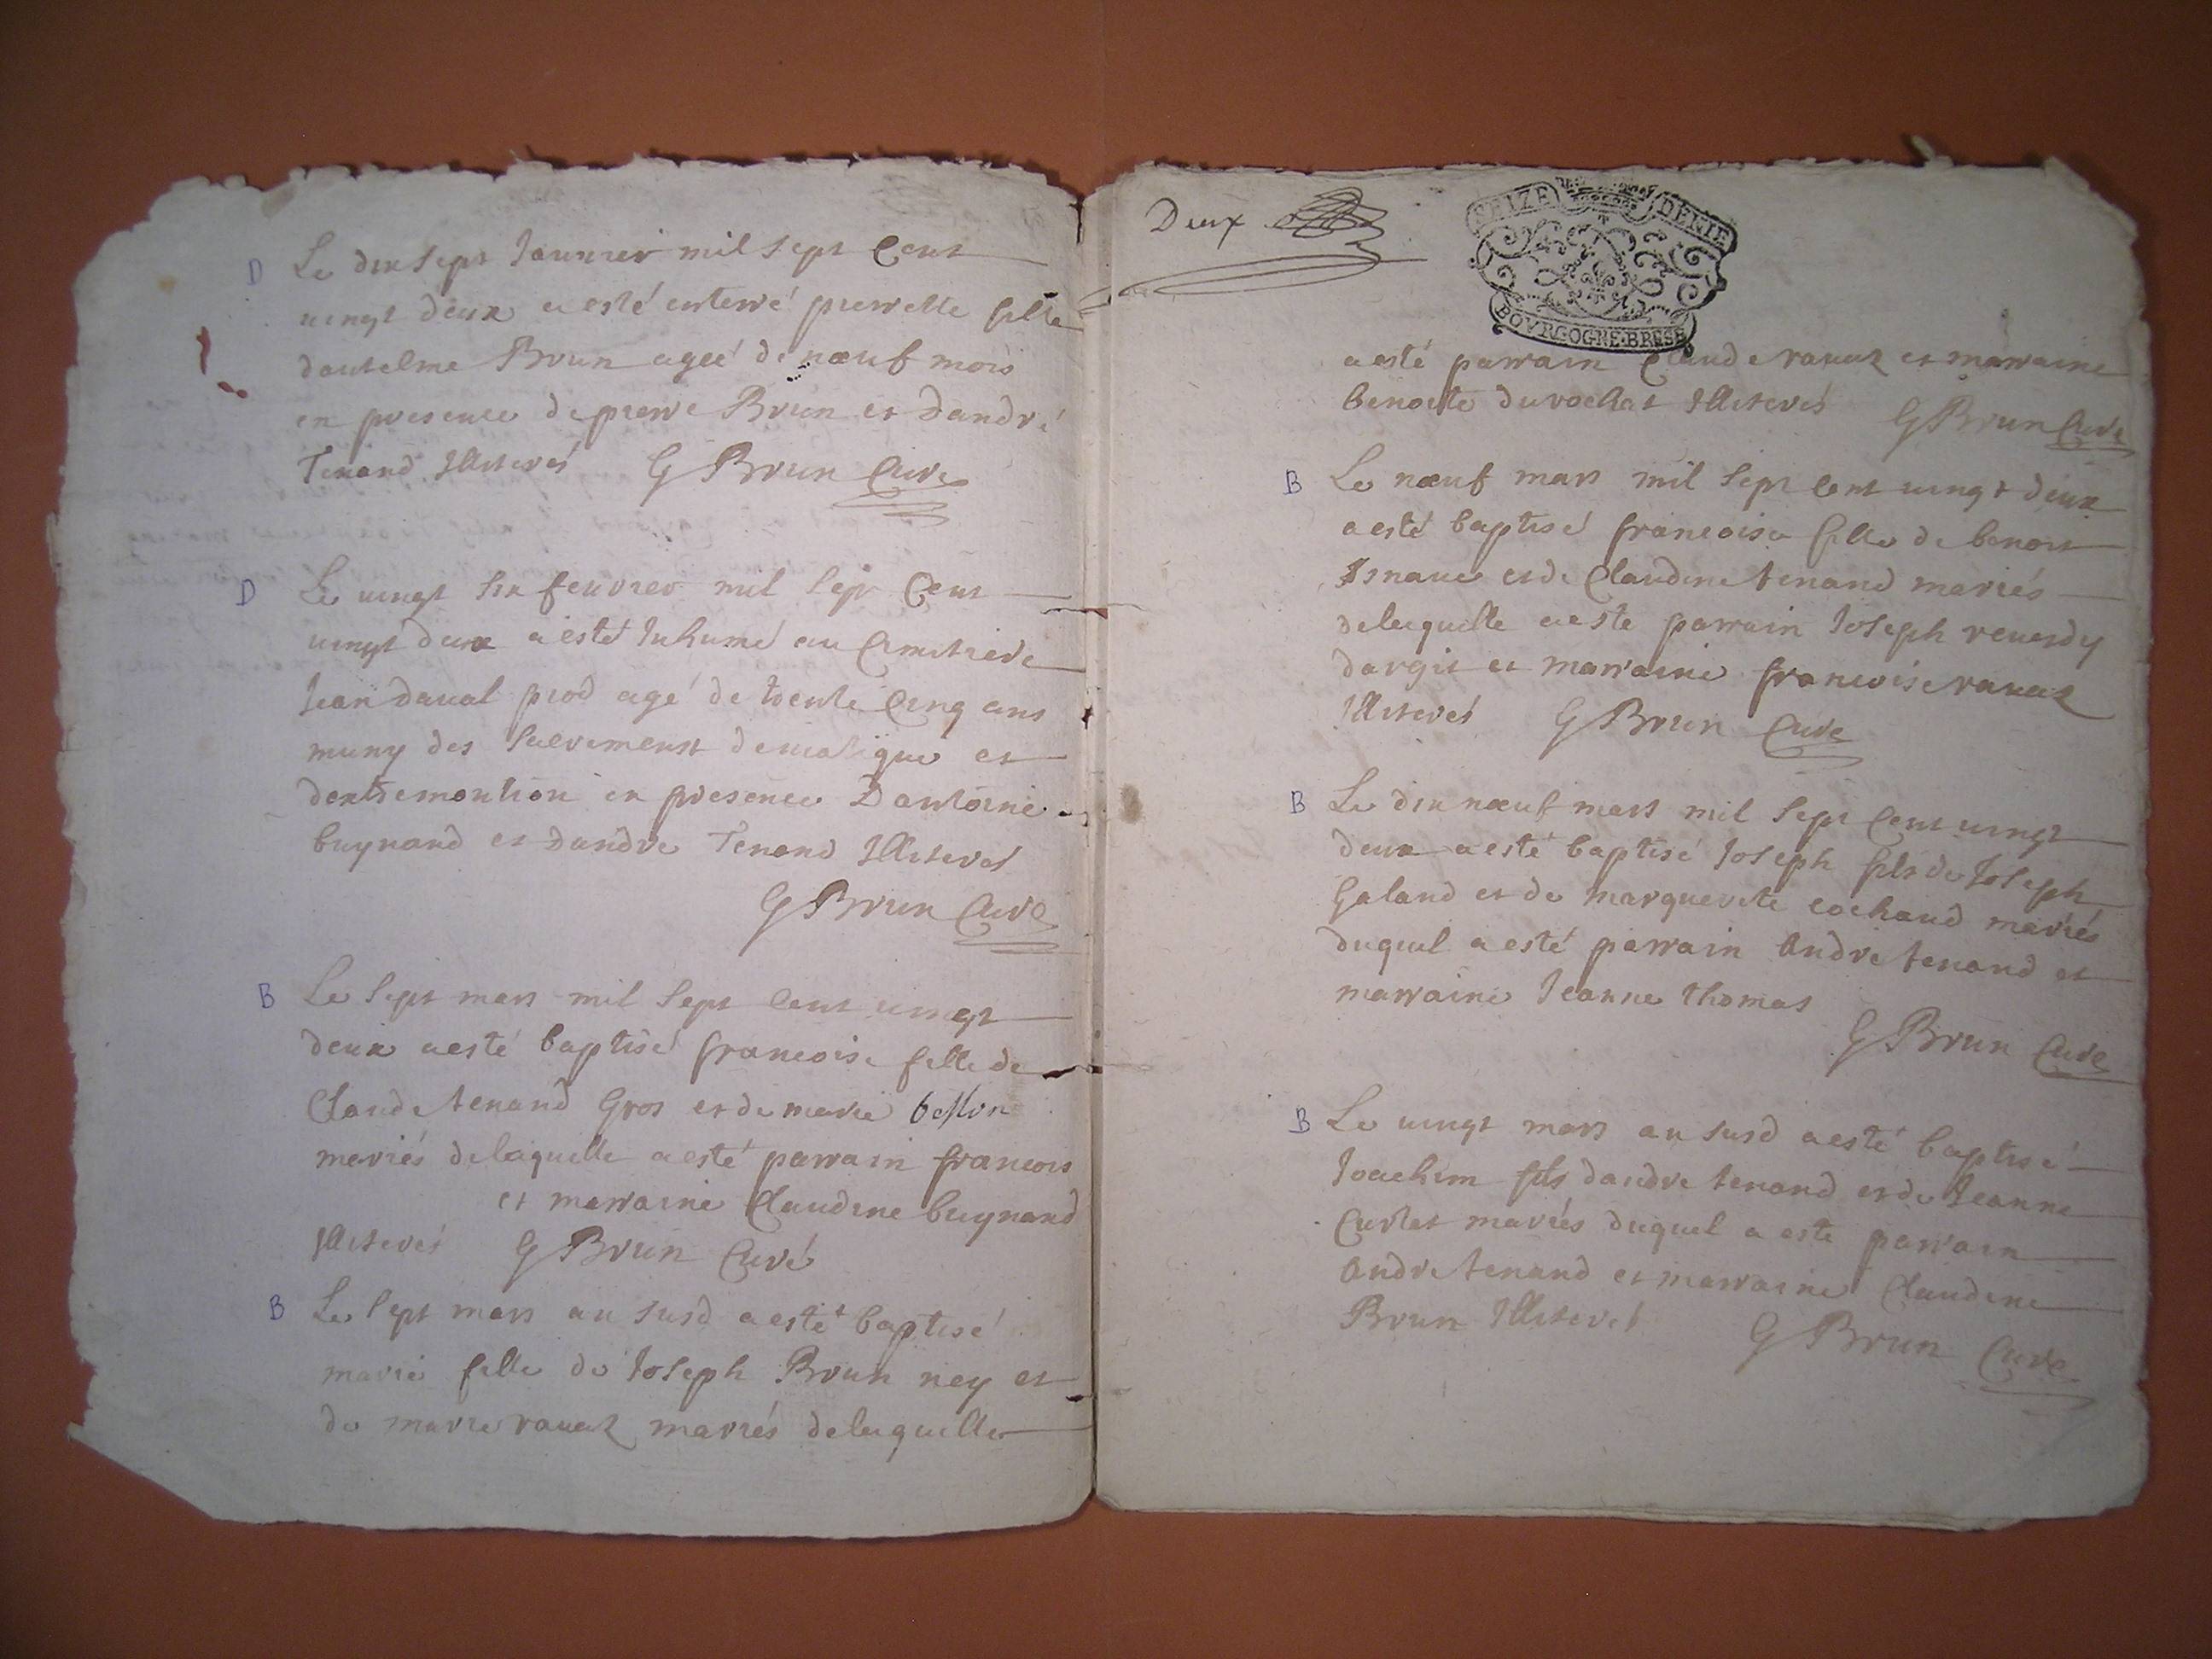 D Le dix sept Januier mil sept Cent
uingt deux a esté enterré pierrette fille
dantelme Brun ageé de nœuf mois
en presence de pierre Brun et Dandré
Tenand Illiterés G Brun Curé
D Le uingt six feuvrier mil sept Cent
uingt deux a esté Inhumé au Cimitiere
Jean daual prod agé de trente Cinq ans
muny des Sacrements et
en presence Dantoine
buynand et Dandre Tenand Illiteres
G Brun Curé
B Le sept mars mil sept Cent uingt
deux a esté baptisé francoise fille de
Claude tenand Gros et de marie
mariés delaquelle a esté parrain francois
et marraine Claudine buynand
Illiterés G Brun Curé
B Le sept mars an susd a esté baptisé
marie fille de Joseph Brun ney et
de marie rauaz mariés delaquelle
Deux
SEIZE DENIE
BOVRGOGNE·BRESE
a esté parrain Claude rauaz et marraine
benoite durochat Illiterés G Brun Curé
B Le nœuf mars mil sept Cent uingt deux
a esté baptisé francoise fille de benoit
et de Claudine tenand mariés
delaquelle a este parrain Joseph reuerdy
dargit et marraine francoise rauaz
Illiterés G Brun Curé
B Le dix nœuf mars mil sept Cent uingt
deux a esté baptisé Joseph fils de Joseph
Galand et de marguerite cochand mariés
duquel a esté parrain Andre tenand et
marraine Jeanne thomas
G Brun Curé
B Le uingt mars an susd a esté baptisé
Joachim fils dandre tenand et de Jeanne
Curlet mariés duquel a este parrain
Andre tenand et marraine Claudine
Brun Illiterés G Brun Curé